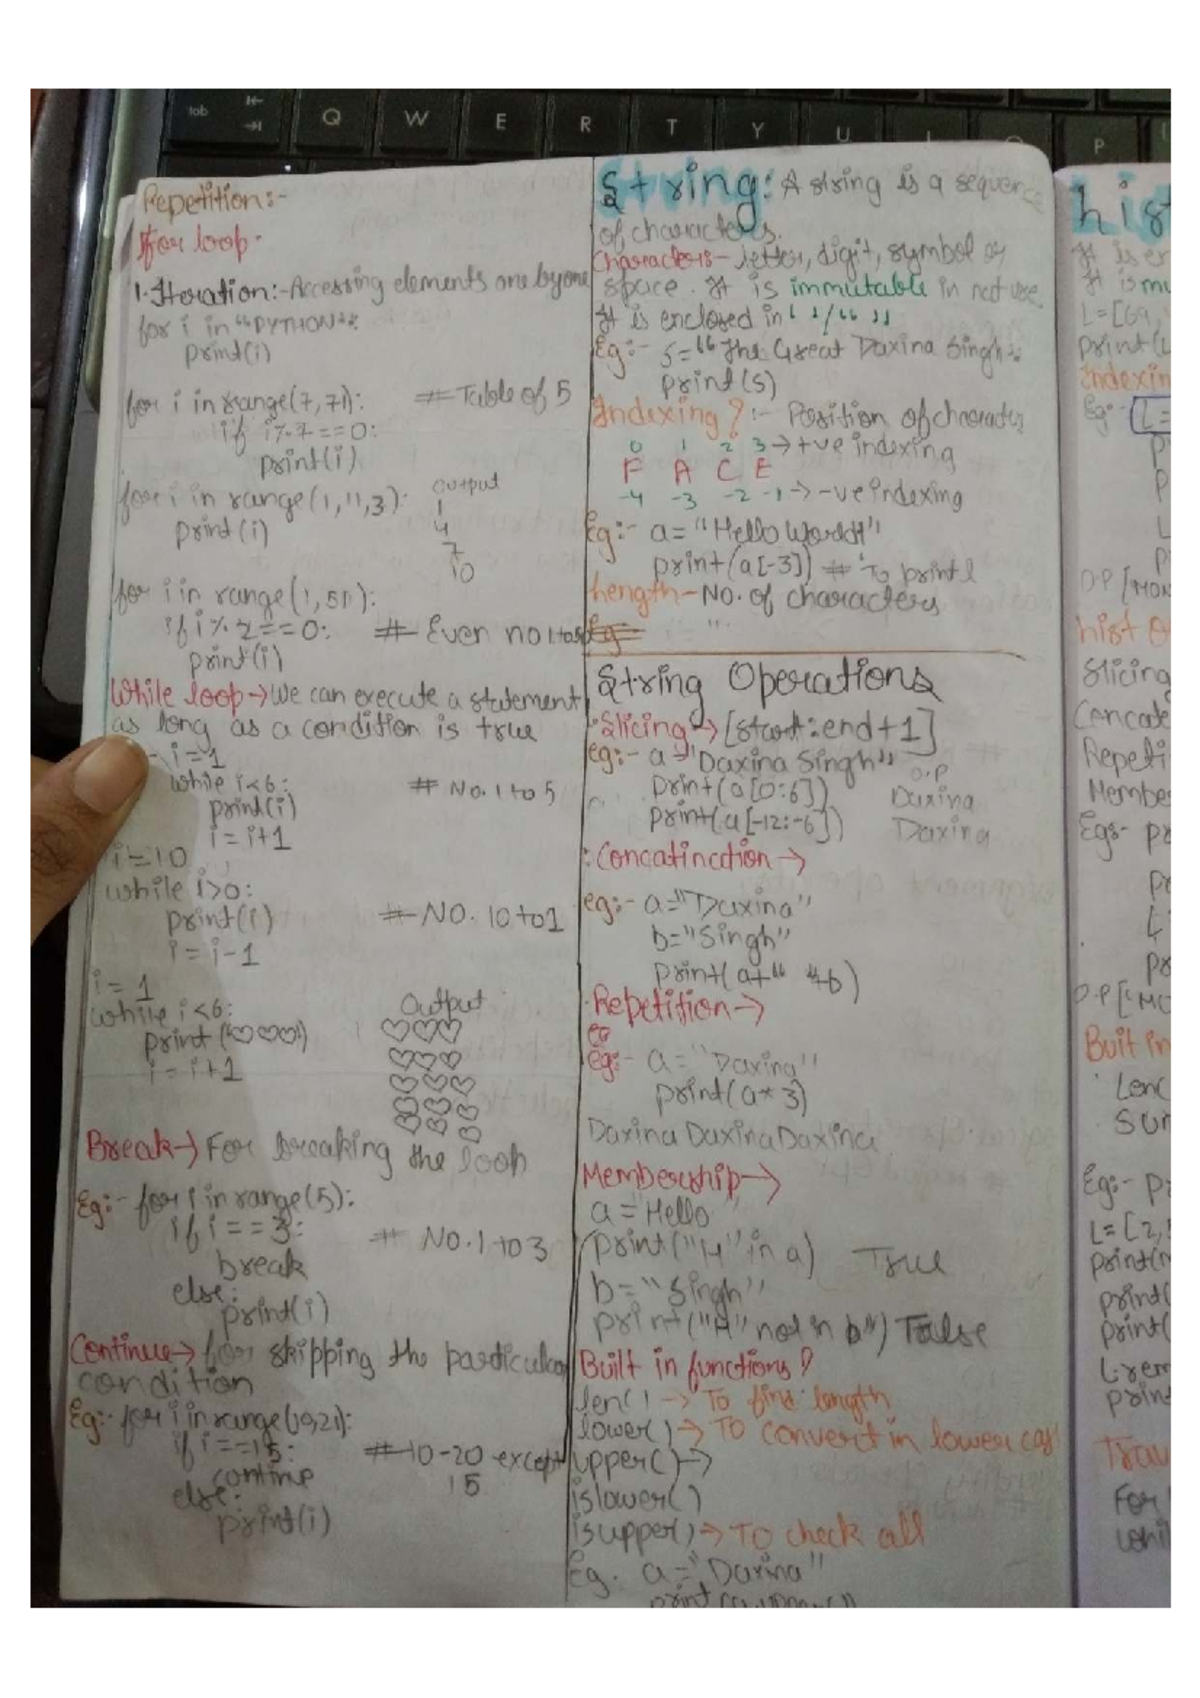 tab
Q W E R T Y U P
Repetition:-
For loop-
1. Iteration:- Accessing elements one by one
for i in "PYTHON":
print(i)
for i in range(7,71): # Table of 5
if i%7==0:
print(i)
for i in range(1,11,3): output
print(i) 1
4
7
10
for i in range(1,51):
if i%2==0: # Even no 1 to 50
print(i)
While loop→ We can execute a statement
as long as a condition is true
i=1
while i<6: # No. 1 to 5
print(i)
i=i+1
i=10
while i>0:
print(i) # No. 10 to 1
i=i-1
i=1
while i<6: Output
print("♡♡♡") ♡♡♡
i=i+1 ♡♡♡
♡♡♡
♡♡♡
♡♡♡
Break→ For breaking the loop
Eg:- for i in range(5):
if i==3: # No. 1 to 3
break
else:
print(i)
Continue→ for skipping the particular
condition
Eg:- for i in range(10,21):
if i==15: # 10-20 except
continue 15
else:
print(i)
String: A string is a sequence
of characters.
Characters- letter, digit, symbol or
space. It is immutable in not use
It is enclosed in ' '/" "
Eg:- s="The Great Daxina Singh"
print(s)
Indexing?:- Position of character
0 1 2 3→+ve indexing
F A C E
-4 -3 -2 -1→-ve indexing
Eg:- a="Hello World"
print(a[-3]) # To print l
Length- No. of characters
Eg
String Operations
Slicing→[start:end+1]
eg:- a="Daxina Singh" O.P
print(a[0:6]) Daxina
print(a[-12:-6]) Daxina
Concatination→
eg:- a="Daxina"
b="Singh"
print(a+" "+b)
Repetition→
eg
eg:- a="Daxina"
print(a*3)
DaxinaDaxinaDaxina
Membership→
a="Hello"
print("H" in a) True
b="Singh"
print("H" not in b") False
Built in functions?
len()→ To find length
lower()→ To convert in lower cas
upper()→
islower()
isupper()→ To check all
Eg. a="Daxina"
print(a.upper())
Lis
It is
It is mu
L=[69,
print(L
Indexin
Eg:- L=
P
P
L
P
O.P [MON
List O
Slicing
Concate
Repeti
Membe
Eg:- pr
pr
L
pr
O.P ["MO
Built in
Len(
Sum
Eg:- pr
L=[2,
print(m
print(
print(
L.rem
print
Trav
For
whil